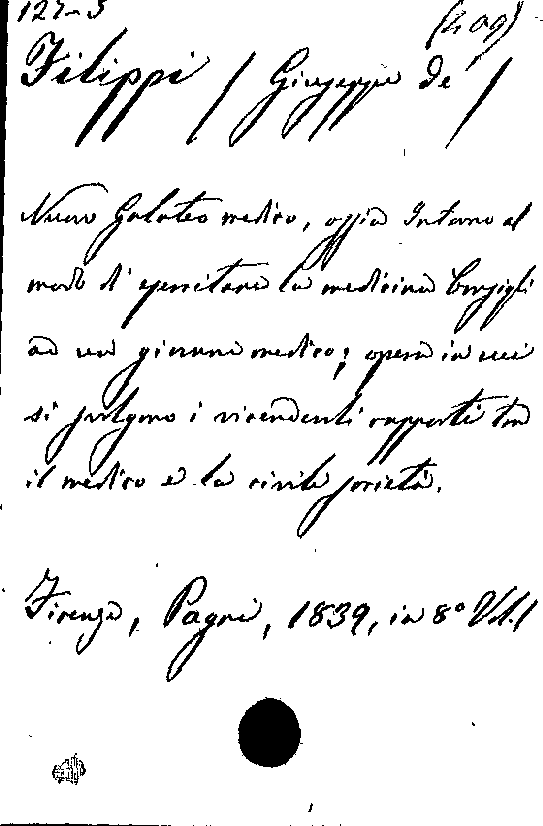 127-3
(409)
Filippi / Giuseppe de /
Nuovo Galateo medico, ossia Intorno al
modo di esercitare la medicina Consigli
ad un giovane medico; opera in cui
si svolgono i vicendevoli rapporti tra
il medico e la civile società.
Firenze, Pagni, 1839, in 8° Vol. 1